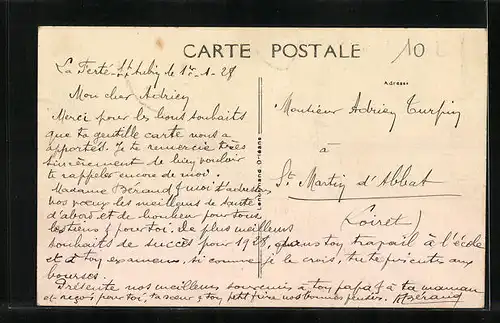 CARTE POSTALE
10
La Ferté-St Aubin le 1er-1-28
Adresse
Mon cher Adrien
Merci pour les bons souhaits
que ta gentille carte nous a
apportés. Je te remercie très
sincèrement de bien vouloir
te rappeler encore de moi.
Madame Béraud & moi t'adressons
nos vœux les meilleurs de santé
d'abord et de bonheur pour tous
les tiens & pour toi. De plus meilleurs
souhaits de succès pour 1928, dans ton travail à l'école
et à ton examen, si comme je le crois, tu te présentes aux
bourses.
Présente nos meilleurs souvenirs à ton papa & à ta maman
et reçois pour toi, ta sœur & ton petit frère nos bonnes pensées. Béraud
Lenormand, Orléans
Monsieur Adrien Turpin
à
St. Martin d'Abbat
Loiret